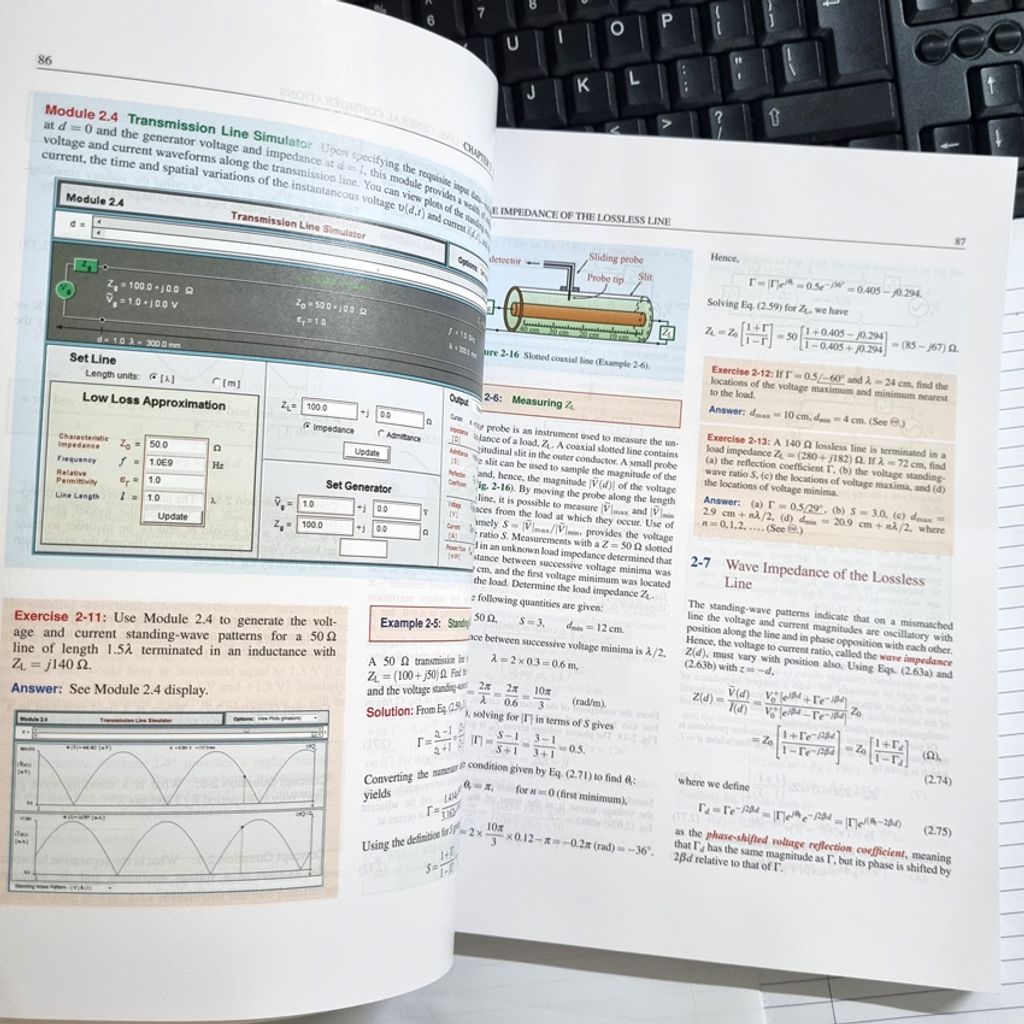 86
Module 2.4 Transmission Line Simulator Upon specifying the requisite input data
at d = 0 and the generator voltage and impedance at d = l, this module provides a wealth of
voltage and current waveforms along the transmission line. You can view plots of the standing
current, the time and spatial variations of the instantaneous voltage υ(d,t) and current i(d,t),
CHAPTER
Module 2.4
Transmission Line Simulator
Options:
d =
Zg
Vg
Zg = 100.0 + j 0.0 Ω
Ṽg = 1.0 + j 0.0 V
Z0 = 50.0 + j 0.0 Ω
εr = 1.0
d = 1.0 λ = 300.0 mm
Set Line
Length units: [λ] [m]
Low Loss Approximation
Characteristic Impedance Z0 = 50.0 Ω
Frequency f = 1.0E9 Hz
Relative Permittivity εr = 1.0
Line Length l = 1.0 λ
Update
ZL = 100.0 +j 0.0 Ω
Impedance Admittance
Update
Set Generator
Ṽg = 1.0 +j 0.0 V
Zg = 100.0 +j 0.0 Ω
Output
Exercise 2-11: Use Module 2.4 to generate the volt-
age and current standing-wave patterns for a 50 Ω
line of length 1.5λ terminated in an inductance with
ZL = j140 Ω.
Answer: See Module 2.4 display.
Module 2.4 Transmission Line Simulator Options:
Standing Wave Pattern
Example 2-5: Standing
A 50 Ω transmission
ZL = (100 + j50) Ω. Find
and the voltage standing-wave
Solution: From Eq.
Converting the numerator
yields
Using the definition for S
E IMPEDANCE OF THE LOSSLESS LINE
87
detector
Sliding probe
Probe tip
Slit
40 cm 30 cm 20 cm 10 cm
ZL
ure 2-16 Slotted coaxial line (Example 2-6).
2-6: Measuring ZL
probe is an instrument used to measure the un-
dance of a load, ZL. A coaxial slotted line contains
gitudinal slit in the outer conductor. A small probe
e slit can be used to sample the magnitude of the
and, hence, the magnitude |Ṽ(d)| of the voltage
ig. 2-16). By moving the probe along the length
line, it is possible to measure |Ṽ|max and |Ṽ|min
aces from the load at which they occur. Use of
amely S = |Ṽ|max/|Ṽ|min, provides the voltage
ratio S. Measurements with a Z = 50 Ω slotted
d in an unknown load impedance determined that
stance between successive voltage minima was
cm, and the first voltage minimum was located
the load. Determine the load impedance ZL.
e following quantities are given:
50 Ω, S = 3, dmin = 12 cm.
nce between successive voltage minima is λ/2,
λ = 2 × 0.3 = 0.6 m,
2π/λ = 2π/0.6 = 10π/3 (rad/m).
), solving for |Γ| in terms of S gives
|Γ| = (S − 1)/(S + 1) = (3 − 1)/(3 + 1) = 0.5.
condition given by Eq. (2.71) to find θr:
θr = π, for n = 0 (first minimum),
= 2 × 10π/3 × 0.12 − π = −0.2π (rad) = −36°.
Hence,
Γ = |Γ|e^jθr = 0.5e^−j36° = 0.405 − j0.294.
Solving Eq. (2.59) for ZL, we have
ZL = Z0 [(1 + Γ)/(1 − Γ)] = 50 [(1 + 0.405 − j0.294)/(1 − 0.405 + j0.294)] = (85 − j67) Ω.
Exercise 2-12: If Γ = 0.5/−60° and λ = 24 cm, find the
locations of the voltage maximum and minimum nearest
to the load.
Answer: dmax = 10 cm, dmin = 4 cm. (See .)
Exercise 2-13: A 140 Ω lossless line is terminated in a
load impedance ZL = (280 + j182) Ω. If λ = 72 cm, find
(a) the reflection coefficient Γ, (b) the voltage standing-
wave ratio S, (c) the locations of voltage maxima, and (d)
the locations of voltage minima.
Answer: (a) Γ = 0.5/29°, (b) S = 3.0, (c) dmax =
2.9 cm + nλ/2, (d) dmin = 20.9 cm + nλ/2, where
n = 0, 1, 2, .... (See .)
2-7 Wave Impedance of the Lossless
Line
The standing-wave patterns indicate that on a mismatched
line the voltage and current magnitudes are oscillatory with
position along the line and in phase opposition with each other.
Hence, the voltage to current ratio, called the wave impedance
Z(d), must vary with position also. Using Eqs. (2.63a) and
(2.63b) with z = −d,
Z(d) = Ṽ(d)/Ĩ(d) = V0+[e^jβd + Γe^−jβd]/V0+[e^jβd − Γe^−jβd] Z0
= Z0 [(1 + Γe^−j2βd)/(1 − Γe^−j2βd)] = Z0 [(1 + Γd)/(1 − Γd)] (Ω),
(2.74)
where we define
Γd = Γe^−j2βd = |Γ|e^jθr e^−j2βd = |Γ|e^j(θr−2βd) (2.75)
as the phase-shifted voltage reflection coefficient, meaning
that Γd has the same magnitude as Γ, but its phase is shifted by
2βd relative to that of Γ.
6 7 8
U I O P
J K L